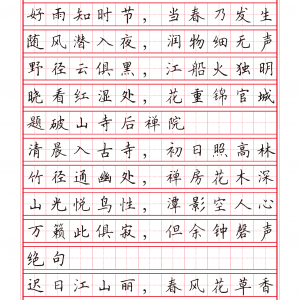 好雨知时节,当春乃发生
随风潜入夜,润物细无声
野径云俱黑,江船火独明
晓看红湿处,花重锦官城
题破山寺后禅院
清晨入古寺,初日照高林
竹径通幽处,禅房花木深
山光悦鸟性,潭影空人心
万籁此俱寂,但余钟磬声
绝句
迟日江山丽,春风花草香